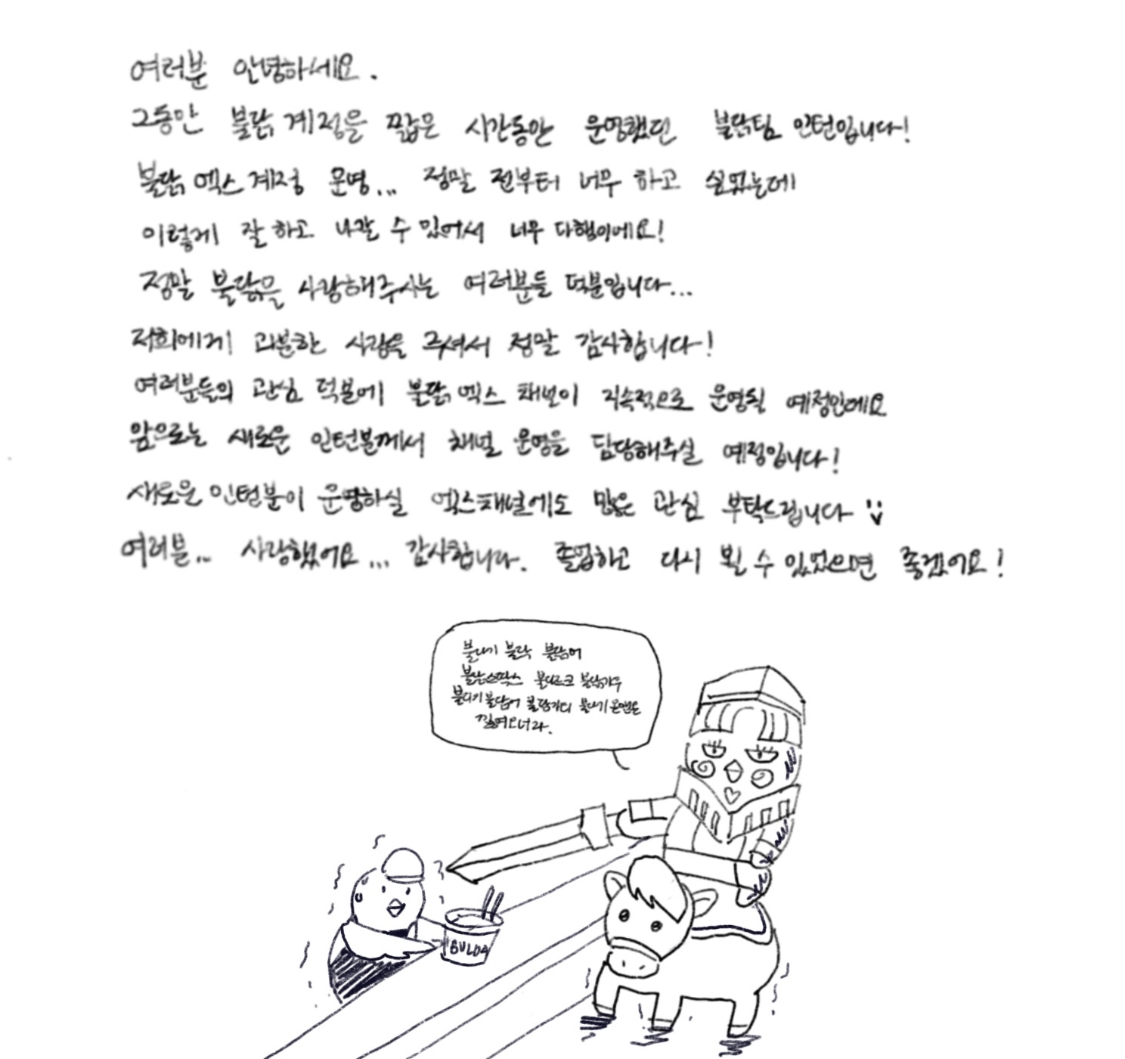 여러분 안녕하세요.
그동안 불닭 계정을 짧은 시간동안 운영했던 불닭팀 인턴입니다!
불닭 엑스 계정 운영... 정말 전부터 너무 하고 싶었는데
이렇게 잘 하고 나갈 수 있어서 너무 다행이에요!
정말 불닭을 사랑해주시는 여러분들 덕분입니다...
저희에게 과분한 사랑을 주셔서 정말 감사합니다!
여러분들의 관심 덕분에 불닭 엑스 채널이 지속적으로 운영될 예정인데요
앞으로는 새로운 인턴분께서 채널 운영을 담당해주실 예정입니다!
새로운 인턴분이 운영하실 엑스채널에도 많은 관심 부탁드립니다 :)
여러분... 사랑했어요... 감사합니다. 졸업하고 다시 뵐 수 있었으면 좋겠어요!
불닭
BULDA